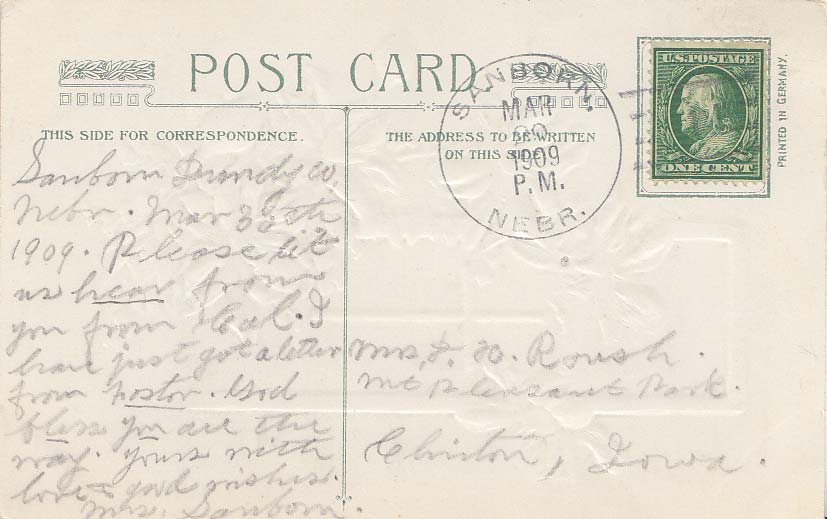 POST CARD
THIS SIDE FOR CORRESPONDENCE.
THE ADDRESS TO BE WRITTEN
ON THIS SIDE
SANBORN.
MAR
1909
P.M.
NEBR.
U.S. POSTAGE
ONE CENT
PRINTED IN GERMANY.
Sanborn Dundy co,
Nebr. Mar th
1909. Please let
us hear from
you from Cal. I
have just got a letter
from Foster. God
bless you all the
way. yours with
love & good wishes.
Mrs, Sanborn.
Mrs, F. H. Roush.
Mt Pleasant Park.
Clinton, Iowa.